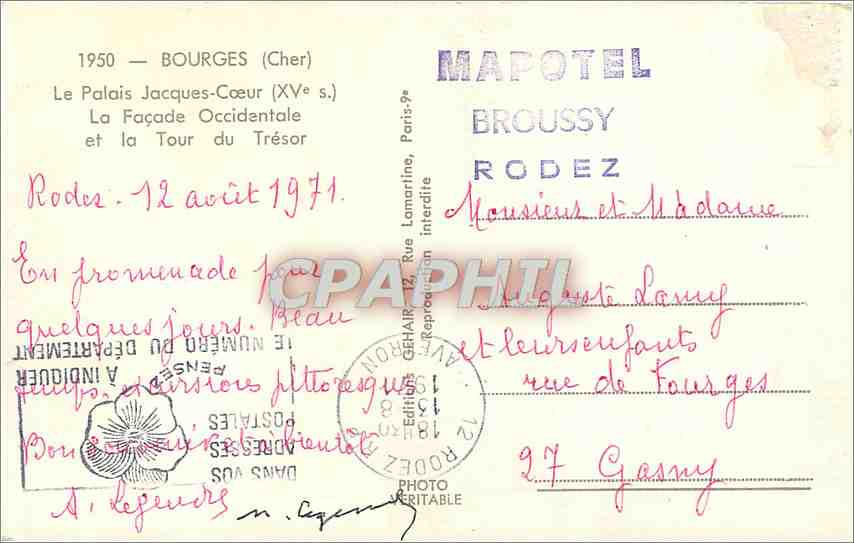 1950 — BOURGES (Cher)
Le Palais Jacques-Cœur (XVe s.)
La Façade Occidentale
et la Tour du Trésor
Rodez. 12 août 1971.
En promenade pour
quelques jours. Beau
temps, excursions pittoresques
Bon souvenir et à bientôt
A. Legendre
Editions GEHAIR, 12, Rue Lamartine, Paris-9e
Reproduction interdite
PHOTO
VÉRITABLE
MAPOTEL
BROUSSY
RODEZ
Monsieur et Madame
Auguste Lamy
et leurs enfants
rue de Fourges
27 Gasny
DANS VOS
ADRESSES
POSTALES
PENSEZ
À INDIQUER
LE NUMÉRO DU DÉPARTEMENT
12 RODEZ
AVEYRON
18H30
13-8
19
CPAPHIL